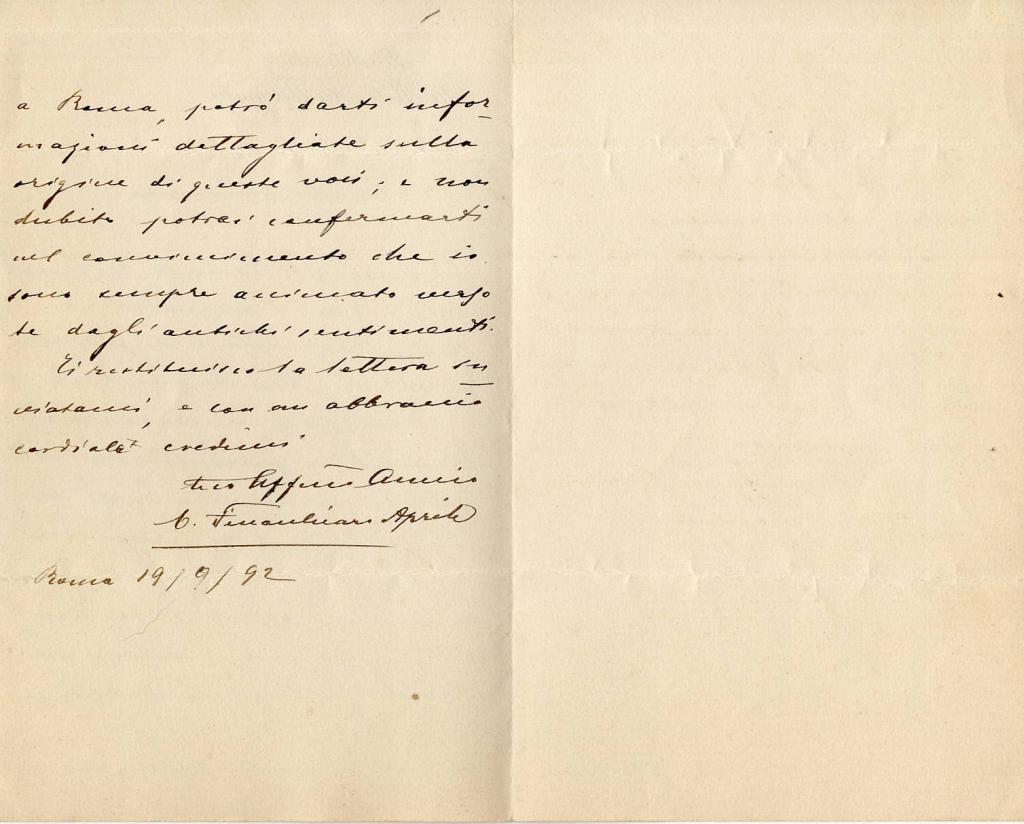 a Roma, potrò darti infor-
mazioni dettagliate sulla
origine di queste voci; e non
dubito potrai confermarti
nel convincimento che io
sono sempre animato verso
te dagli antichi sentimenti.
Ti restituisco la lettera in-
viatami, e con un abbraccio
cordiale credimi
tuo Affmo Amico
C. Finocchiaro Aprile
Roma 19/9/92